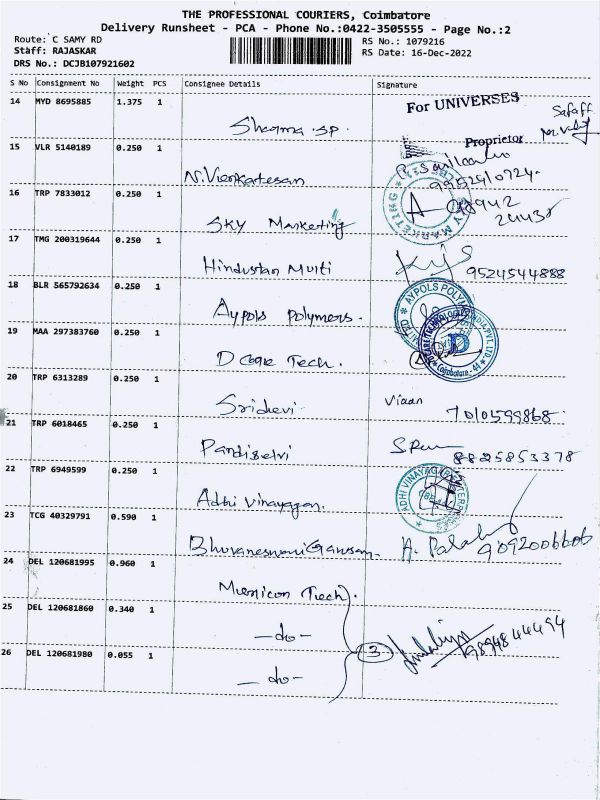 THE PROFESSIONAL COURIERS, Coimbatore
Delivery Runsheet - PCA - Phone No.:0422-3505555 - Page No.:2
Route: C SAMY RD
RS No.: 1079216
Staff: RAJASKAR
RS Date: 16-Dec-2022
DRS No.: DCJB107921602
S No Consignment No Weight PCS Consignee Details Signature
14 MYD 8695885 1.375 1 Sharma sp. For UNIVERSES
Proprietor
15 VLR 5140189 0.250 1 N. Venkatesan
16 TRP 7833012 0.250 1 Sky Marketing
17 TMG 200319644 0.250 1 Hindustan Multi 9524544888
18 BLR 565792634 0.250 1 Aypols polymers. AYPOLS POLY
19 MAA 297383760 0.250 1 D Care Tech. D Coimbatore - 44
20 TRP 6313289 0.250 1 Sridevi Viaan 7010599868.
21 TRP 6018465 0.250 1 Pandiselvi 8825853378
22 TRP 6949599 0.250 1 Adhi Vinayagan. ADHI VINAYAGA
23 TCG 40329791 0.590 1 Bhuvaneswari Ganesan. 9092006606
24 DEL 120681995 0.960 1 Tech
25 DEL 120681860 0.340 1 -do- 3 9894844494
26 DEL 120681980 0.055 1 -do-